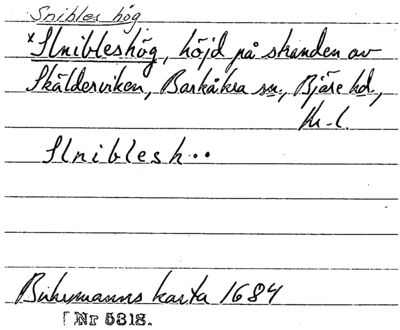 Snibles hög
*Slnibleshög, höjd på stranden av
Skälderviken, Barkåkra sn., Bjäre hd.,
Kr. l.
Slniblesh..
Buhrmanns karta 1684
[Nr 5318.